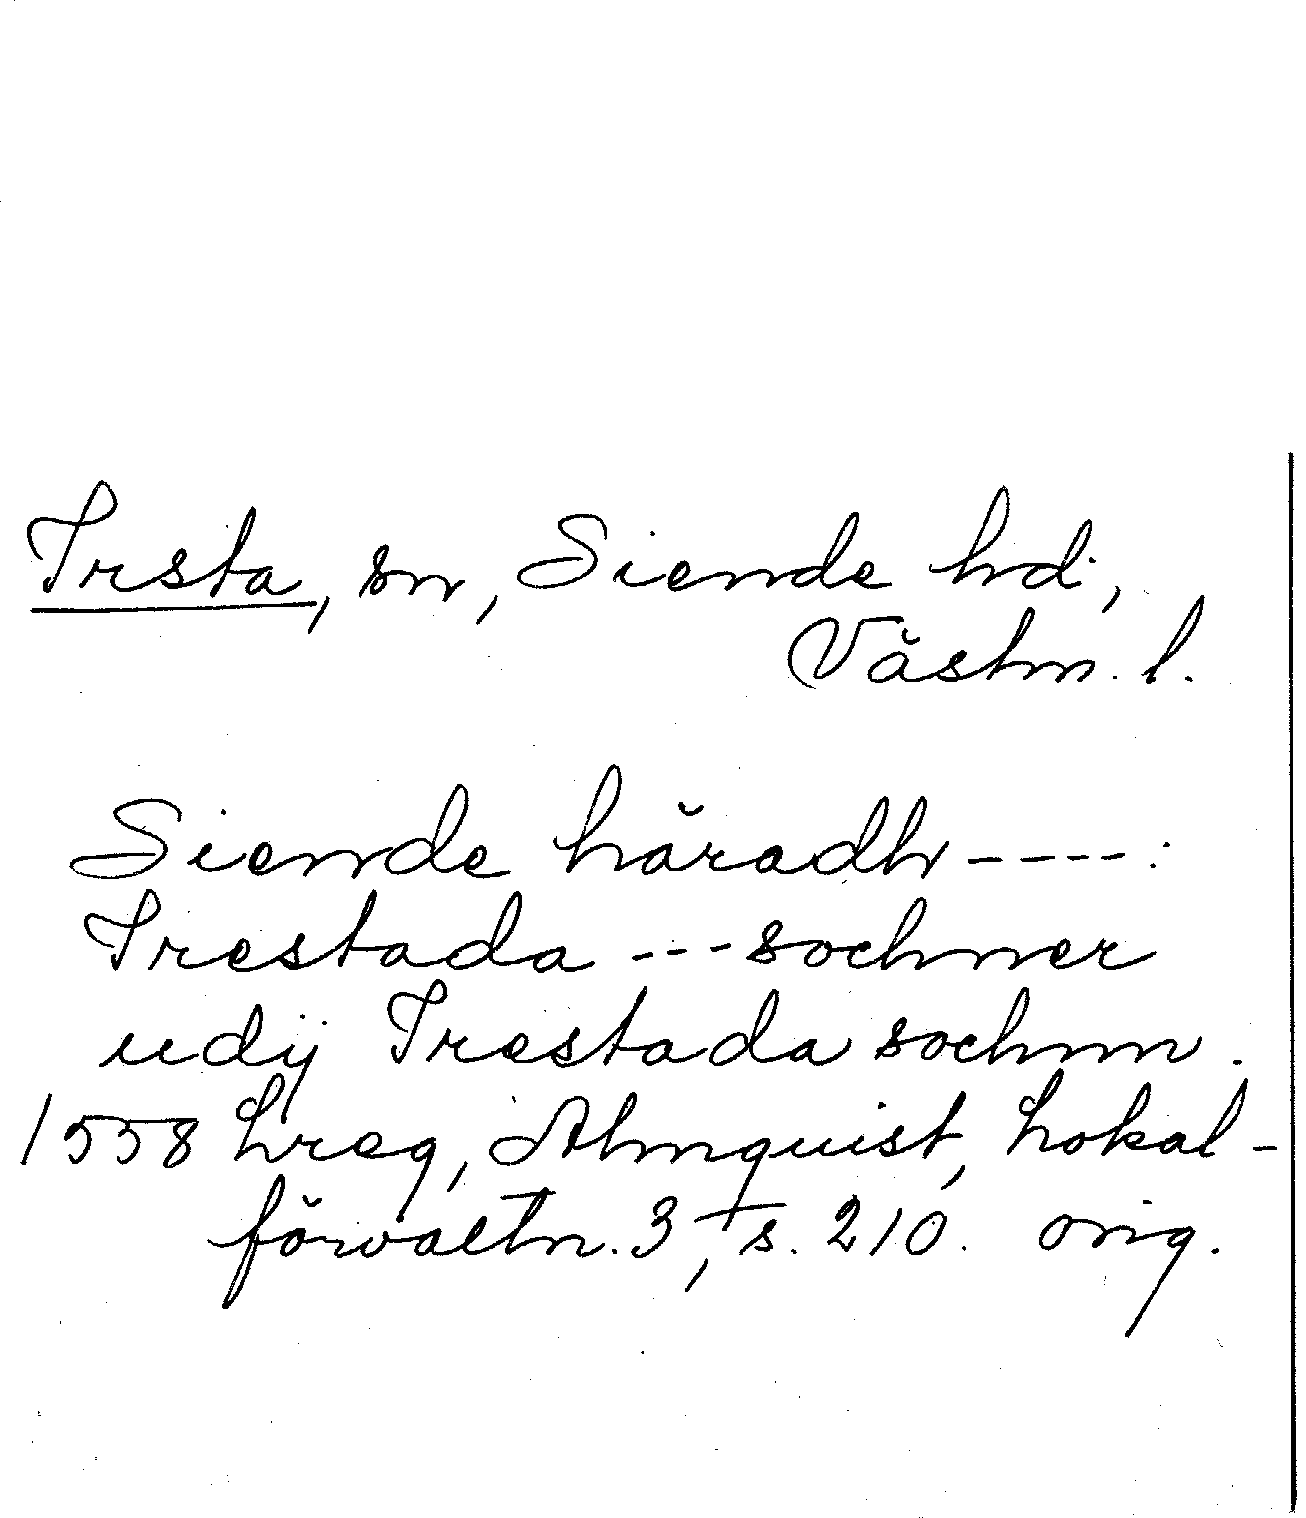 Irsta, sn, Siende hd.,
Västm. l.
Siende häradh ----:
Irestada --- sochner
udij Irestada sochnn.
1558 Lreg, Almquist, Lokal-
förvaltn. 3, s. 210. orig.